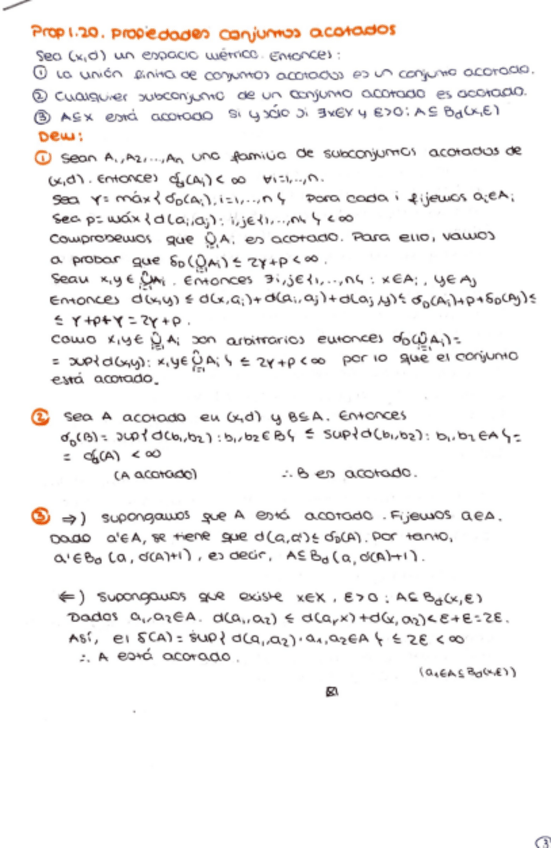 Prop 1.20. Propiedades conjuntos acotados
Sea (X,d) un espacio métrico. Entonces:
① La unión finita de conjuntos acotados es un conjunto acotado.
② Cualquier subconjunto de un conjunto acotado es acotado.
③ A⊆X está acotado si y sólo si ∃x∈X y ε>0: A⊆B_d(x,ε)
Dem:
① Sean A₁,A₂,...,Aₙ una familia de subconjuntos acotados de
(X,d). Entonces δ_D(A_i) < ∞ ∀i=1,...,n.
Sea r = máx{δ_D(A_i), i=1,...,n} Para cada i fijemos a_i∈A_i
Sea p = máx{d(a_i,a_j): i,j∈{1,...,n}} < ∞
Comprobemos que ⋃ᵢ₌₁ⁿ A_i es acotado. Para ello, vamos
a probar que δ_D(⋃ᵢ₌₁ⁿ A_i) ≤ 2r+p < ∞.
Sean x,y ∈ ⋃ᵢ₌₁ⁿ A_i. Entonces ∃i,j∈{1,...,n}: x∈A_i, y∈A_j
Entonces d(x,y) ≤ d(x,a_i)+d(a_i,a_j)+d(a_j,y) ≤ δ_D(A_i)+p+δ_D(A_j) ≤
≤ r+p+r = 2r+p.
Como x,y∈ ⋃ᵢ₌₁ⁿ A_i son arbitrarios entonces δ_D(⋃ᵢ₌₁ⁿ A_i) =
= sup{d(x,y): x,y∈ ⋃ᵢ₌₁ⁿ A_i} ≤ 2r+p < ∞ por lo que el conjunto
está acotado.
② Sea A acotado en (X,d) y B⊆A. Entonces
δ_D(B) = sup{d(b₁,b₂): b₁,b₂∈B} ≤ sup{d(b₁,b₂): b₁,b₂∈A} =
= δ_D(A) < ∞
(A acotado) ∴ B es acotado.
③ ⇒) Supongamos que A está acotado. Fijemos a∈A.
Dado a'∈A, se tiene que d(a,a') ≤ δ_D(A). Por tanto,
a'∈B_d(a, δ(A)+1), es decir, A⊆B_d(a, δ(A)+1).
⇐) Supongamos que existe x∈X, ε>0: A⊆B_d(x,ε)
Dados a₁,a₂∈A. d(a₁,a₂) ≤ d(a₁,x)+d(x,a₂) < ε+ε = 2ε.
Así, el δ(A) = sup{d(a₁,a₂): a₁,a₂∈A} ≤ 2ε < ∞
∴ A está acotado.
(a₁∈A⊆B_d(x,ε))
3